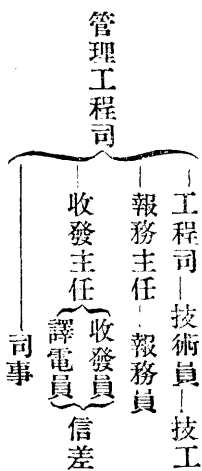 管理工程司
工程司—技術員—技工
報務主任—報務員
收發主任
收發員
譯電員
信差
司事